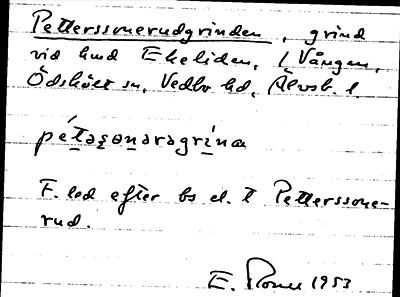 Petterssonerudgrinden, grind
vid hmd Ekeliden, i Vången,
Ödskölt sn, Vedbo hd, Älvsb. l.
pétəsənərəgrina
F. led efter bs el. t Petterssone-
rud.
E. 1953